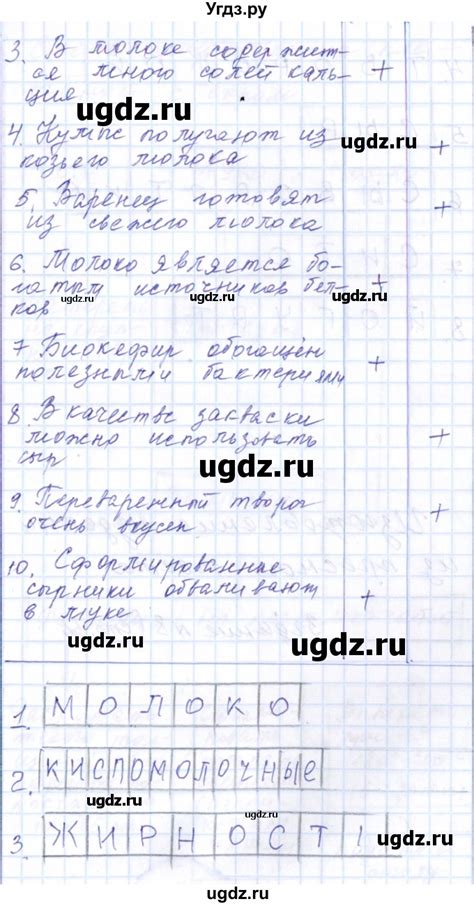 Угдз.ру
3. В молоке содержит-
ся много солей каль- +
ция
ugdz.ru
4. Кумыс получают из
козьего молока +
ugdz.ru
5. Варенец готовят
из свежего молока +
6. Молоко является бо-
гатым источников бел- +
ков
ugdz.ru ugdz.ru
7 Биокефир обогащён
полезными бактериями +
8. В качестве закваски
можно использовать +
сыр
ugdz.ru
9. Переваренный творог
очень вкусен +
ugdz.ru
10. Сформированные
сырники обваливают
в муке +
ugdz.ru ugdz.ru
1. МОЛОКО
ugdz.ru
2. КИСЛОМОЛОЧНЫЕ
ugdz.ru
3. ЖИРНОСТЬ
ugdz.ru
ugdz.ru